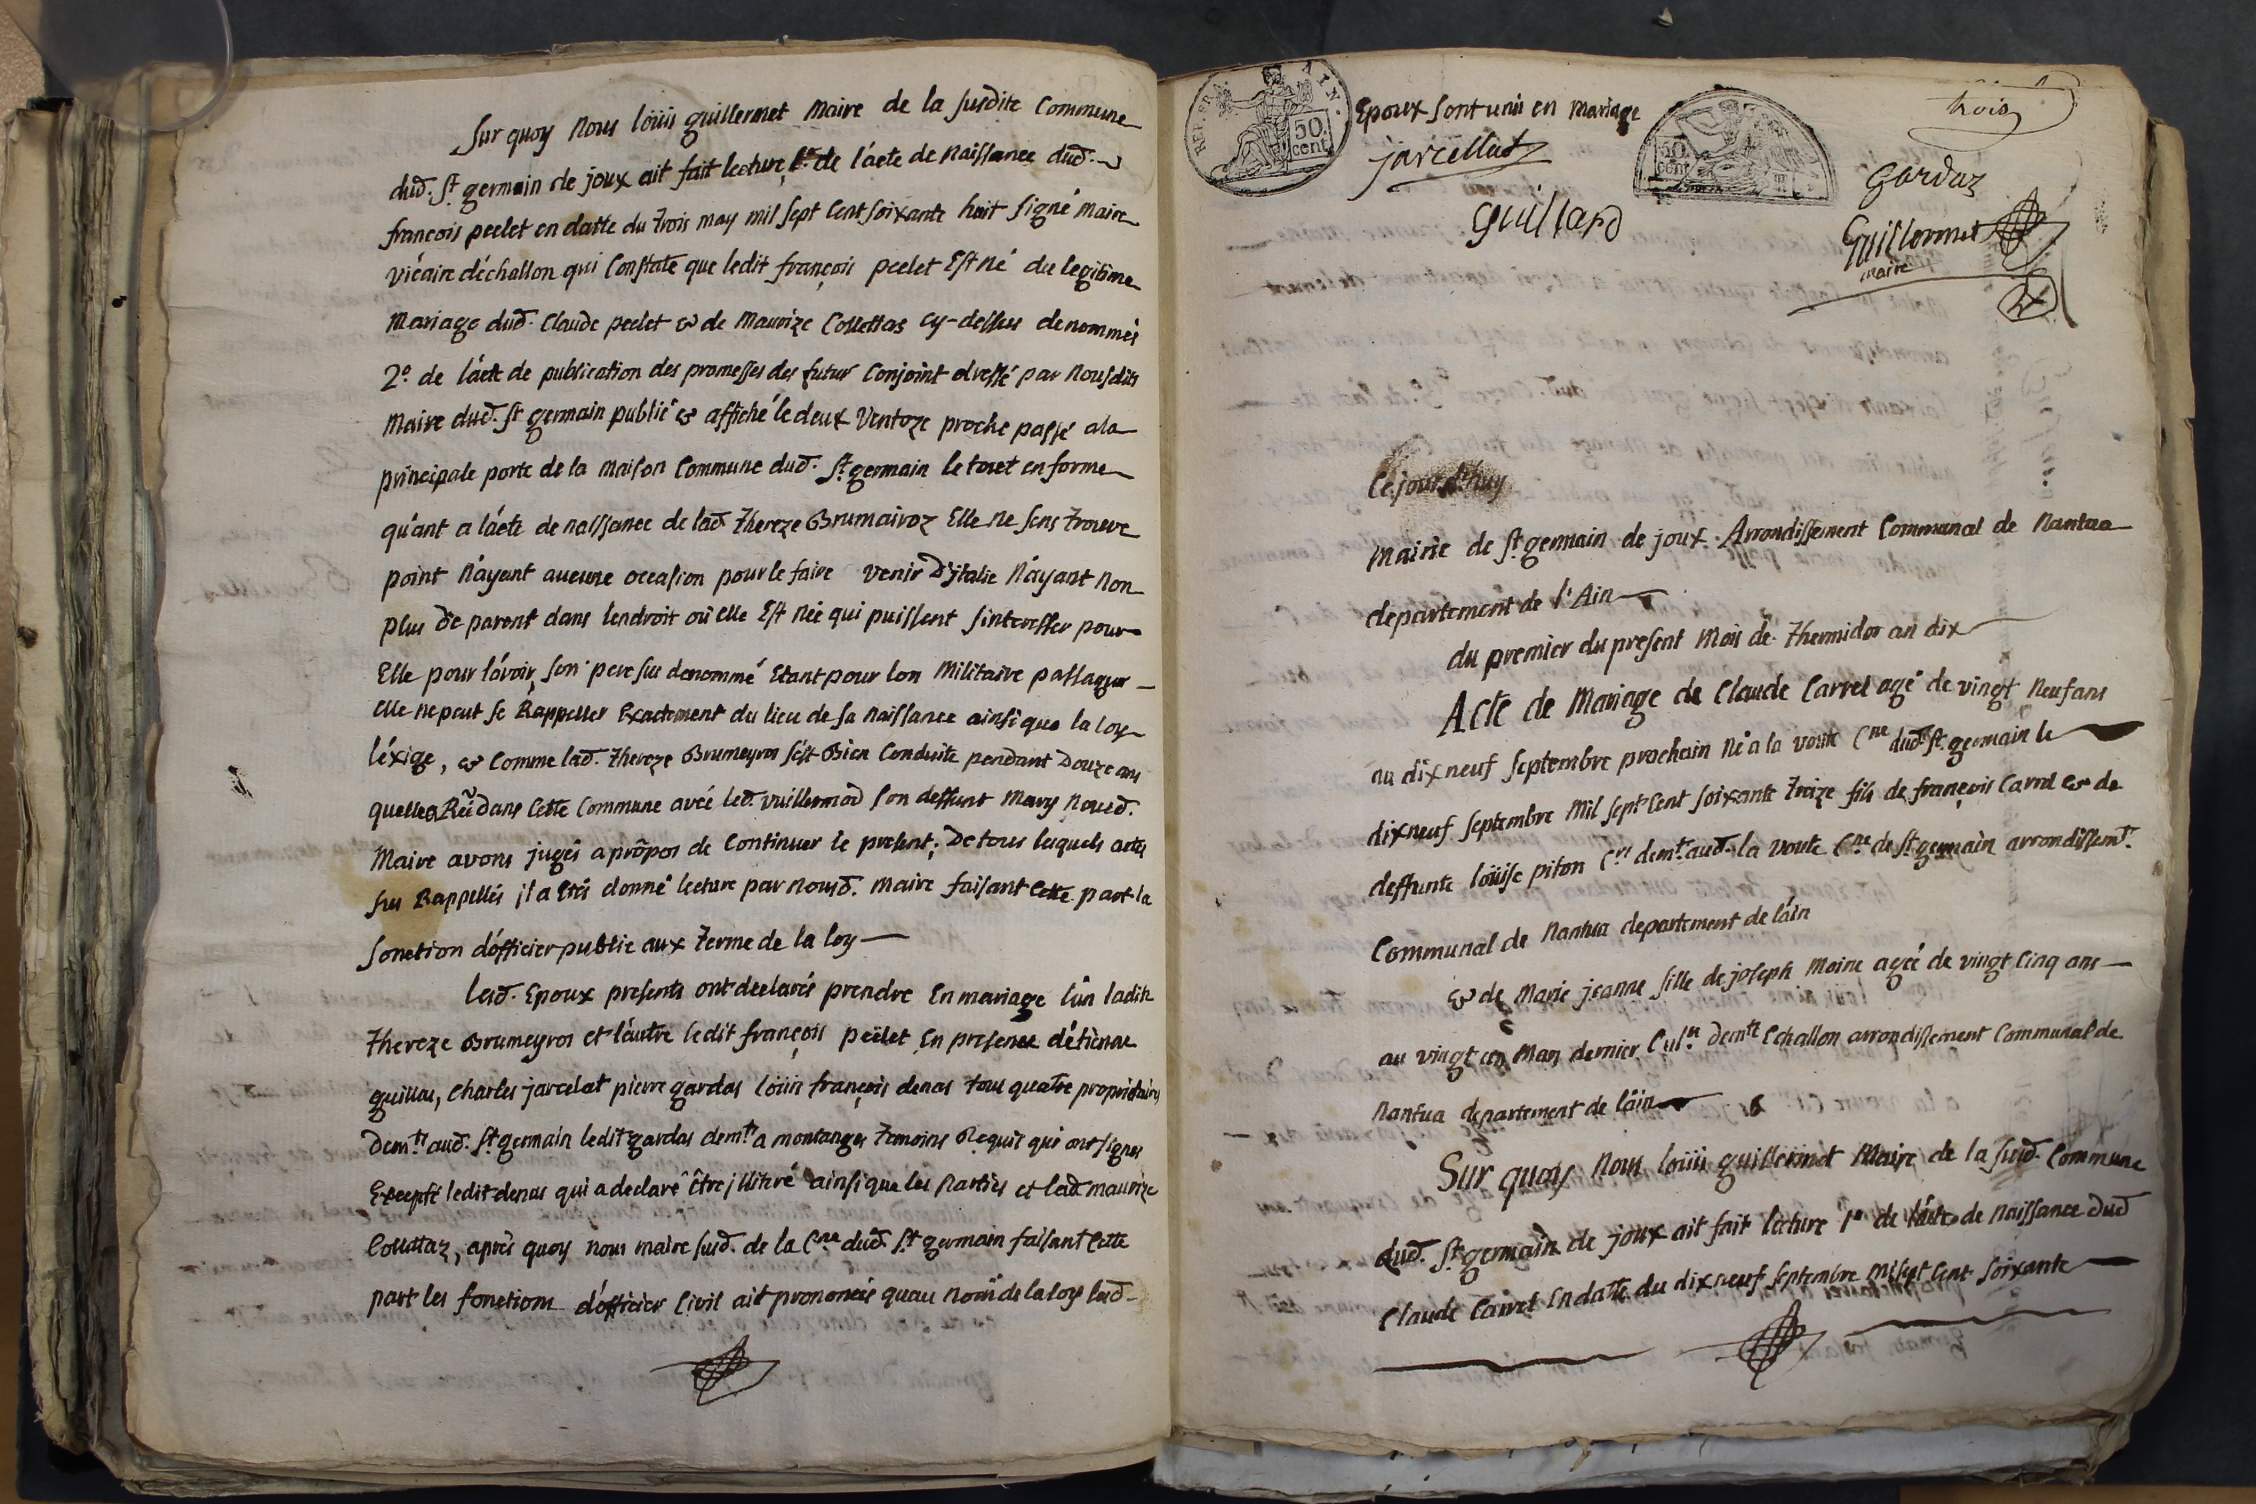 Sur quoy Nous loüis guillermet Maire de la susdite Commune
dud. St germain de joux ait fait lecture, 1º de l'acte de Naissance dud.
francois peelet en datte du trois may mil sept Cent soixante huit signé maire
vicaire d'échallon qui Constate que ledit françois peelet Est né du legitime
Mariage dud. Claude peelet & de Maurize Collettas cy-dessus denommés
2º de l'acte de publication des promesses des futur Conjoint dressé par Nousdits
Maire dud. St germain publié & affiché le deux Ventoze proche passé a la
principale porte de la Maison Commune dud. St germain le tout en forme
qu'ant a l'acte de naissance de lad. thereze Brumairoz Elle ne sens trouve
point N'ayant aucune occasion pour le faire venir D'italie N'ayant Non
plus de parent dans lendroit où elle Est née qui puissent sinteresser pour
Elle pour l'avoir, son pere sus denommé Etant pour lon Militaire passager
elle ne peut se Rappeller Exactement du lieu de sa Naissance ainsi que la loy
l'éxige, & Comme lad. thereze Brumeyros s'est Bien Conduite pendant Douze ans
quelle a dans Cette Commune avec led. vuillermod son deffunt Mary Nousd.
Maire avons jugés apropos de Continuer le present; De tous lesquels actes
sus Rappellés il a Etés donné lecture par Nousd. Maire faisant Cette part la
fonction d'officier public aux terme de la loy
Lesd. Epoux presents ont declarés prendre En mariage l'un ladite
thereze Brumeyros et l'autre ledit françois peelet En presence d'étienne
guillar, Charles jarcelat pierre gardas loüis françois denas tous quatre proprietaires
Demts aud. St germain ledit gardas demt a montanges temoins Requis qui ont signes
Excepté ledit denas qui a declaré être illitiré ainsi que les Parties et lad. maurize
Collettaz, après quoy nous maire susd. de la Cne dud. St germain faisant Cette
part les fonctions d'officier Civil ait prononcés quau nom de la loy lesd.
REP. FRA. AIN.
50 cent
Epoux sont unis en mariage
50 cent
trois
jarcellat
guillard
gardaz
guillermet
maire
Cejourd'huy
Mairie de St germain de joux. Arrondissement Communal de Nantua
departement de l'Ain
du premier du present Mois de thermidor an dix
Acte de Mariage de Claude Carrel agé de vingt Neuf ans
au dix neuf septembre prochain Né a la voute Cne dud. St germain le
dixneuf septembre Mil sept Cent soixante treize fils de françois Carrel & de
deffunte loüise piton demt aud. la voute Cne de St germain arrondissemt
Communal de Nantua departement de l'ain
& de Marie jeanne fille de joseph Moine agée de vingt Cinq ans
au vingt Mars dernier, Demte Echallon arrondissement Communal de
Nantua departement de l'ain
Sur quoy Nous loüis guillermet Maire de la susd. Commune
dud. St germain de joux ait fait lecture 1º de l'acte de Naissance Dud
Claude Carrel En datte du dix neuf septembre mil sept Cent soixante